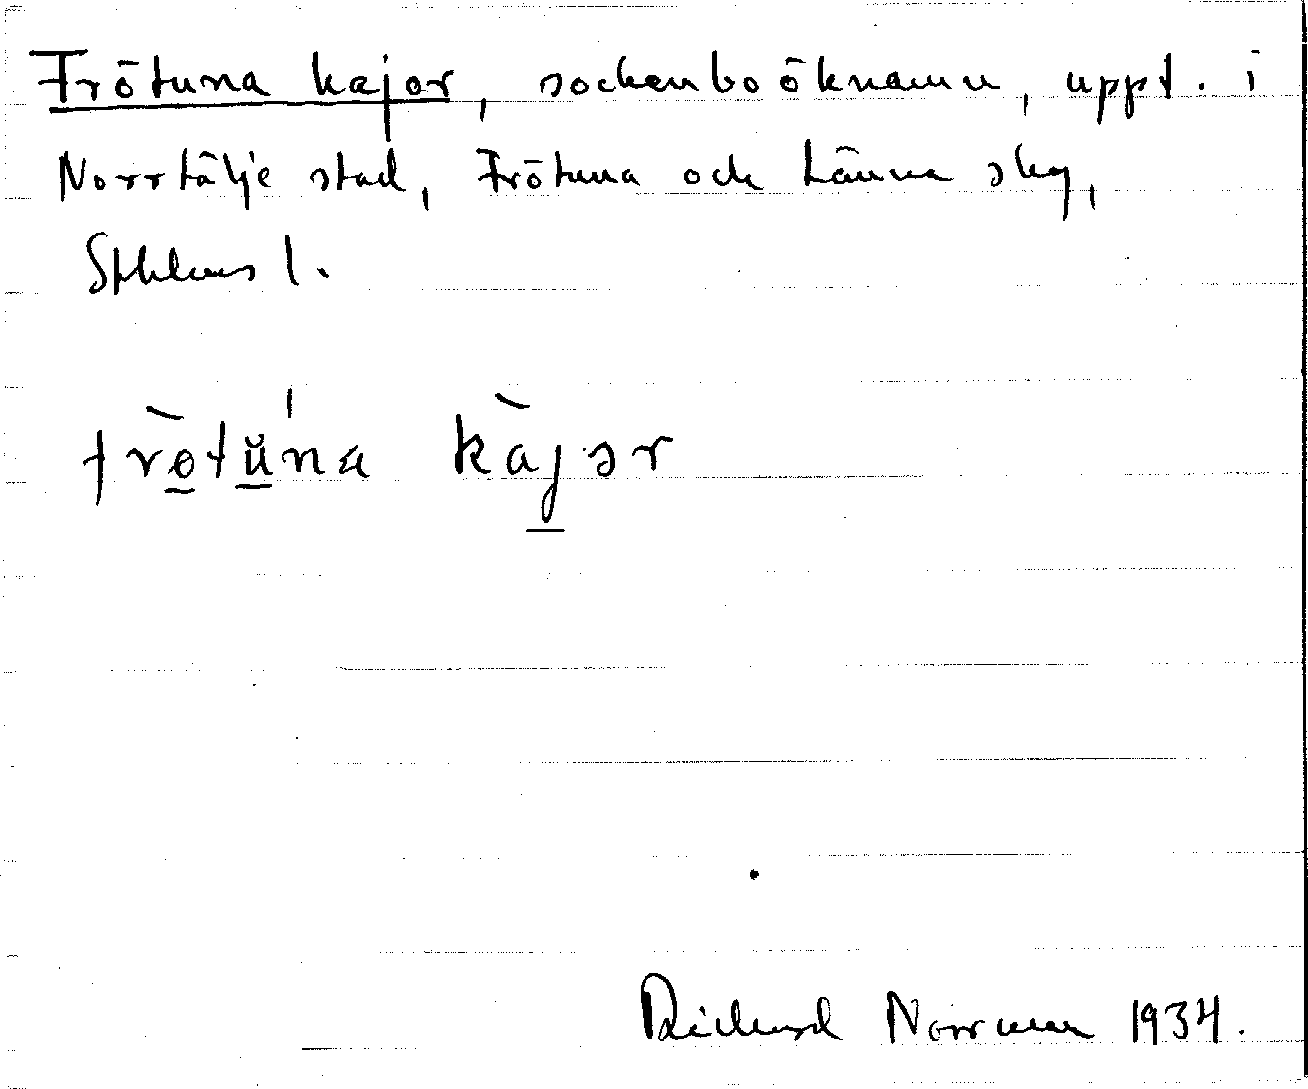 Frötuna kajor, sockenboöknamn, uppt. i
Norrtälje stad, Frötuna och Länna skg,
Sthlms l.
frötŭ́na kàjər
Rickard Norrman 1934.